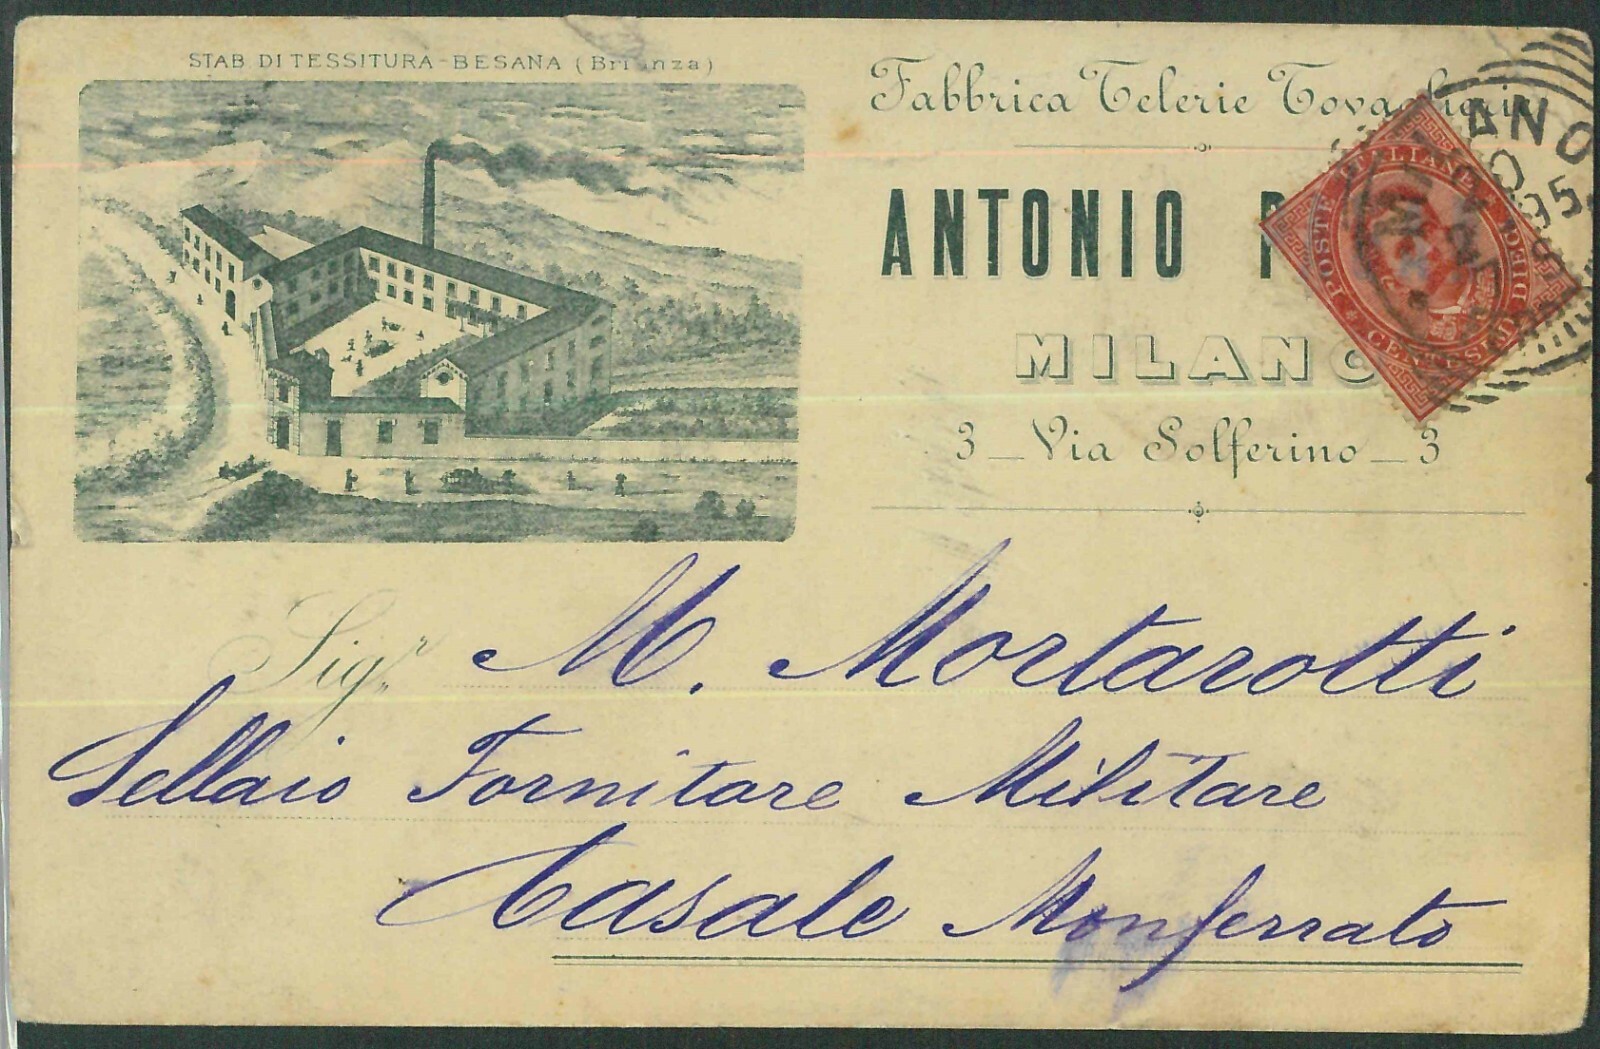 STAB DI TESSITURA-BESANA (Brianza)
Fabbrica Telerie Tovaglierie
ANTONIO
MILANO
3 _ Via Solferino _ 3
* POSTE ITALIANE *
CENTESIMI DIECI
MILANO
95
Sigr. M. Mortarotti
Sellaio Fornitore Militare
Casale Monferrato